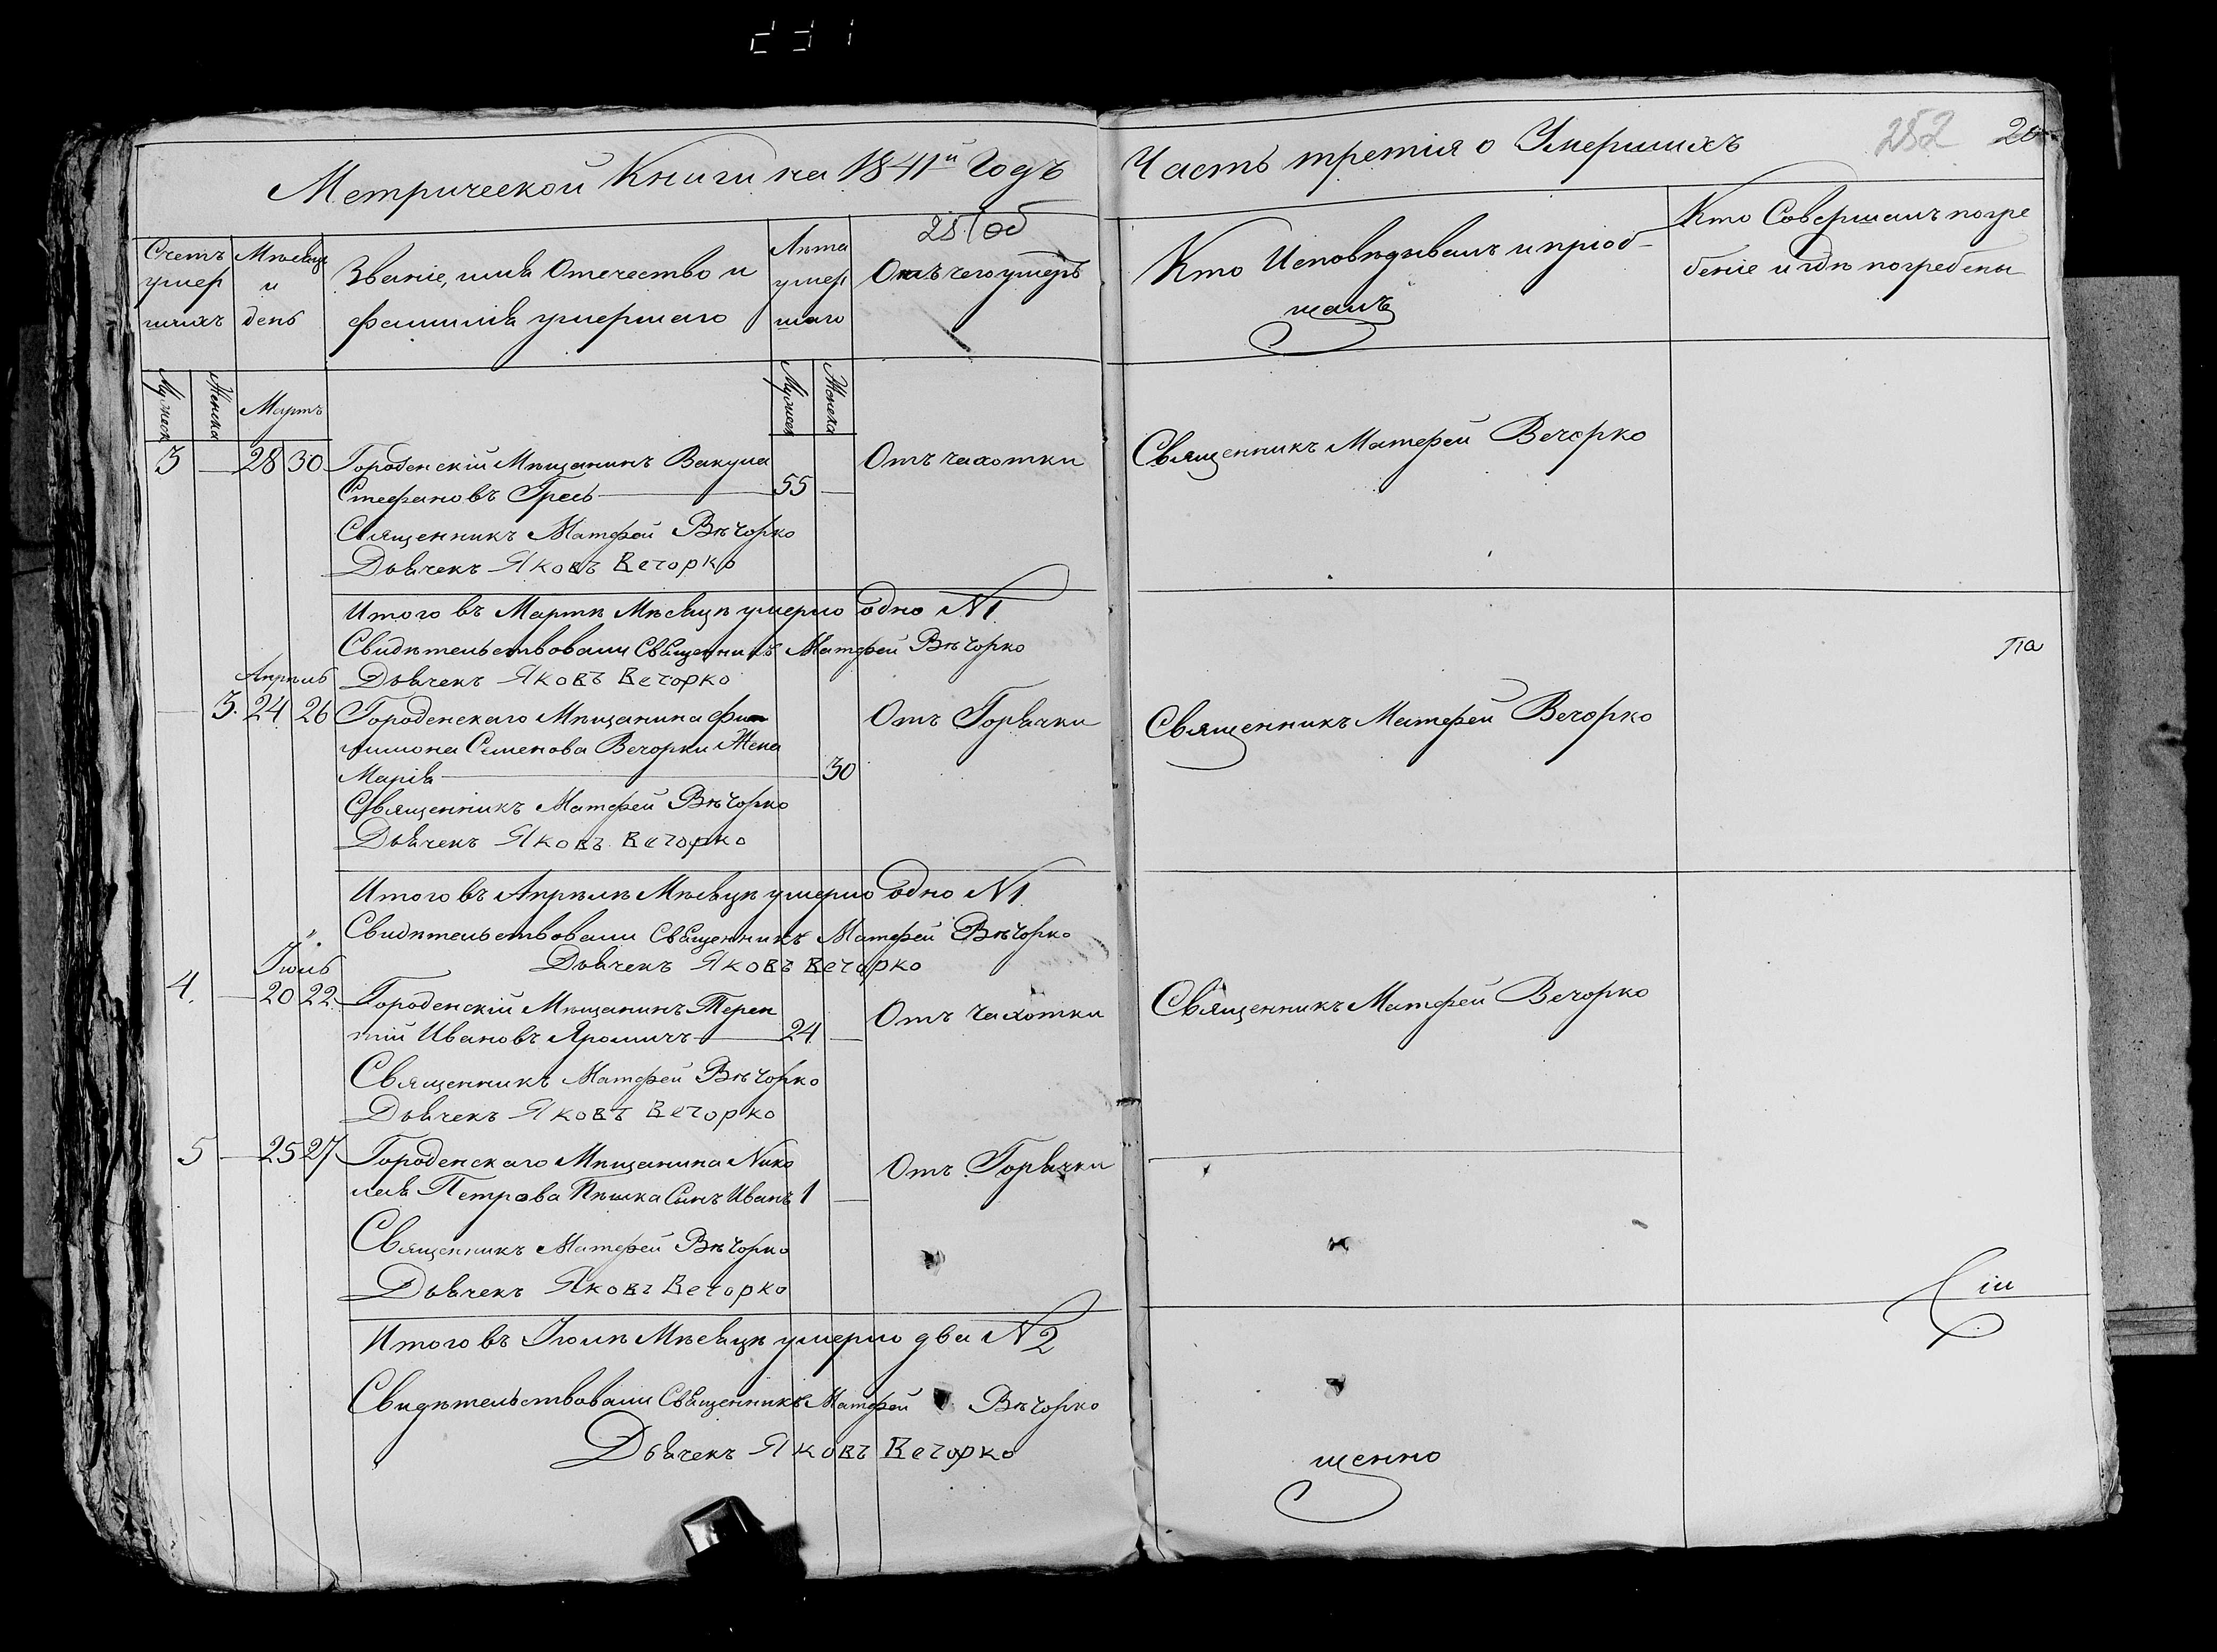 Метрической Книги на 1841й Годъ
251 об
Счетъ умер шихъ
Мѣсяцъ и день
Званіе, имя Отечество и
фамилія умершаго
Лѣта умер шаго
Отъ чего умеръ
Мужеск
Женска
Мартъ
Мужеск
Женска
3 — 28 30 Городенскій Мѣщанинъ Вакула
Стефановъ Гресь — 55 —
Отъ чахотки
Священникъ Матфей Вѣчорко
Дьячекъ Яковъ Вечорко
Итого въ Мартѣ Мѣсяцѣ умерло одно N 1
Свидѣтельствовали Священникъ Матфей Вѣчорко
Дьячекъ Яковъ Вечорко
Апрѣль
— 3. 24 26 Городенскаго Мѣщанина Фи
лимона Семенова Вечорки Жена
Марія — 30
Отъ Горячки
Священникъ Матфей Вѣчорко
Дьячекъ Яковъ Вечорко
Итого въ Апрѣлѣ Мѣсяцѣ умерло одно N 1
Свидѣтельствовали Священникъ Матфей Вѣчорко
Дьячекъ Яковъ Вечорко
Іюль
4. — 20 22 Городенскій Мѣщанинъ Терен
тій Ивановъ Яромичъ — 24 —
Отъ Чахотки
Священникъ Матфей Вѣчорко
Дьячекъ Яковъ Вечорко
5 — 25 27 Городенскаго Мѣщанина Нико
лая Петрова Пѣшка Сынъ Иванъ 1 —
Отъ Горячки
Священникъ Матфей Вѣчорко
Дьячекъ Яковъ Вечорко
Итого въ Іюлѣ Мѣсяцѣ умерло два N 2
Свидѣтельствовали Священникъ Матфей Вѣчорко
Дьячекъ Яковъ Вечорко
Часть третія о Умершихъ
252
Кто Исповѣдывалъ и пріоб-
щалъ
Кто Совершалъ погре
беніе и гдѣ погребены
Священникъ Матфей Вечорко
па
Священникъ Матфей Вечорко
Священникъ Матфей Вечорко
щенно